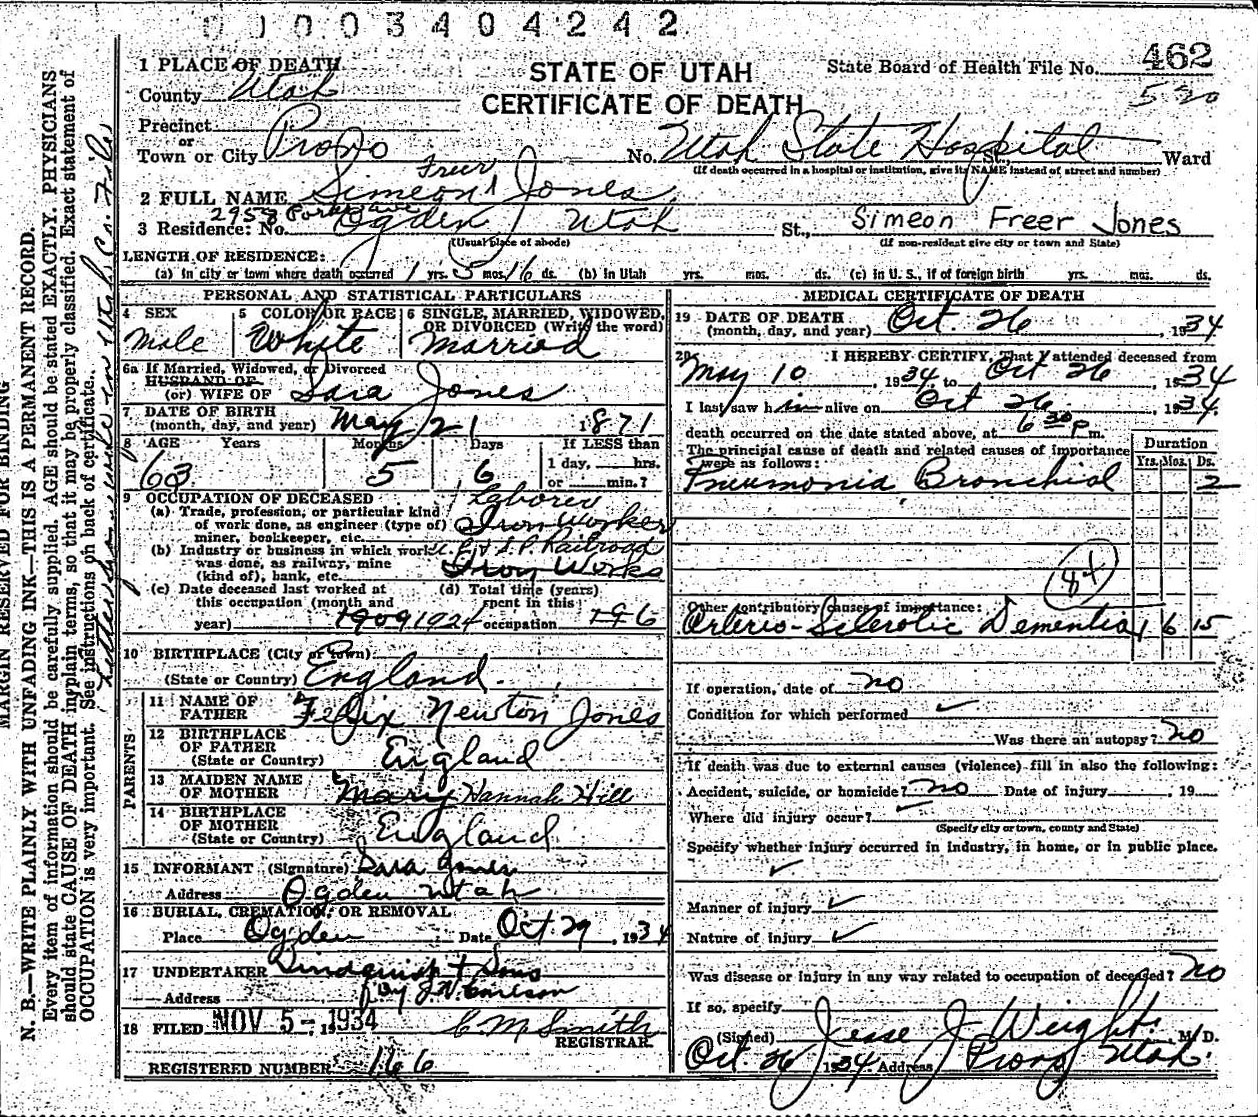 0003404242
462
STATE OF UTAH
CERTIFICATE OF DEATH
State Board of Health File No.
520
1 PLACE OF DEATH
County Utah
Precinct
or
Town or City Provo No. Utah State Hospital St., Ward
(If death occurred in a hospital or institution, give its NAME instead of street and number)
Freer
2 FULL NAME Simeon Jones
3 Residence: No. 2958 Ogden Utah St., Simeon Freer Jones
(Usual place of abode) (If non-resident give city or town and State)
LENGTH OF RESIDENCE:
(a) In city or town where death occurred 1 yrs. 5 mos. 16 ds. (b) In Utah yrs. mos. ds. (c) in U. S., if of foreign birth yrs. mos. ds.
PERSONAL AND STATISTICAL PARTICULARS
4 SEX 5 COLOR OR RACE 6 SINGLE, MARRIED, WIDOWED, OR DIVORCED (Write the word)
Male White Married
6a If Married, Widowed, or Divorced
HUSBAND OF
(or) WIFE OF Sara Jones
7 DATE OF BIRTH
(month, day, and year) May 21 1871
8 AGE Years Months Days If LESS than
63 5 6 1 day, hrs.
or min.?
9 OCCUPATION OF DECEASED Laborer
(a) Trade, profession, or particular kind
of work done, as engineer (type of) Iron Worker
miner, bookkeeper, etc.
(b) Industry or business in which work S.P. Railroad
was done, as railway, mine
(kind of), bank, etc. Iron Works
(c) Date deceased last worked at (d) Total time (years)
this occupation (month and spent in this
year) 1909 1924 occupation 196
10 BIRTHPLACE (City or Town)
(State or Country) England
PARENTS
11 NAME OF
FATHER Felix Newton Jones
12 BIRTHPLACE
OF FATHER
(State or Country) England
13 MAIDEN NAME
OF MOTHER Mary Hannah Hill
14 BIRTHPLACE
OF MOTHER
(State or Country) England
15 INFORMANT (Signature) Sara Jones
Address Ogden Utah
16 BURIAL, CREMATION, OR REMOVAL
Place Ogden Date Oct. 29, 1934
17 UNDERTAKER Lindquist & Sons
Address By
18 FILED NOV 5 - 1934 C M Smith
REGISTRAR.
REGISTERED NUMBER 166
MEDICAL CERTIFICATE OF DEATH
19 DATE OF DEATH
(month, day, and year) Oct. 26, 1934
20 I HEREBY CERTIFY, That I attended deceased from
May 10, 1934, to Oct 26, 1934
I last saw him alive on Oct 26, 1934.
death occurred on the date stated above, at 6 30 p m.
The principal cause of death and related causes of importance
were as follows:
Duration
Yrs. Mos. Ds.
Pneumonia Bronchial 2
84
Other contributory causes of importance:
Arterio-Sclerotic Dementia 1 6 15
If operation, date of no
Condition for which performed
Was there an autopsy? no
If death was due to external causes (violence) fill in also the following:
Accident, suicide, or homicide? no Date of injury , 19
Where did injury occur?
(Specify city or town, county and State)
Specify whether injury occurred in industry, in home, or in public place.
Manner of injury
Nature of injury
Was disease or injury in any way related to occupation of deceased? no
If so, specify
(Signed) Jesse J Weight M.D.
Oct. 26 1934 Address Provo, Utah.
MARGIN RESERVED FOR BINDING
N. B.—WRITE PLAINLY WITH UNFADING INK—THIS IS A PERMANENT RECORD.
Every item of information should be carefully supplied. AGE should be stated EXACTLY. PHYSICIANS
should state CAUSE OF DEATH in plain terms, so that it may be properly classified. Exact statement of
OCCUPATION is very important. See instructions on back of certificate.